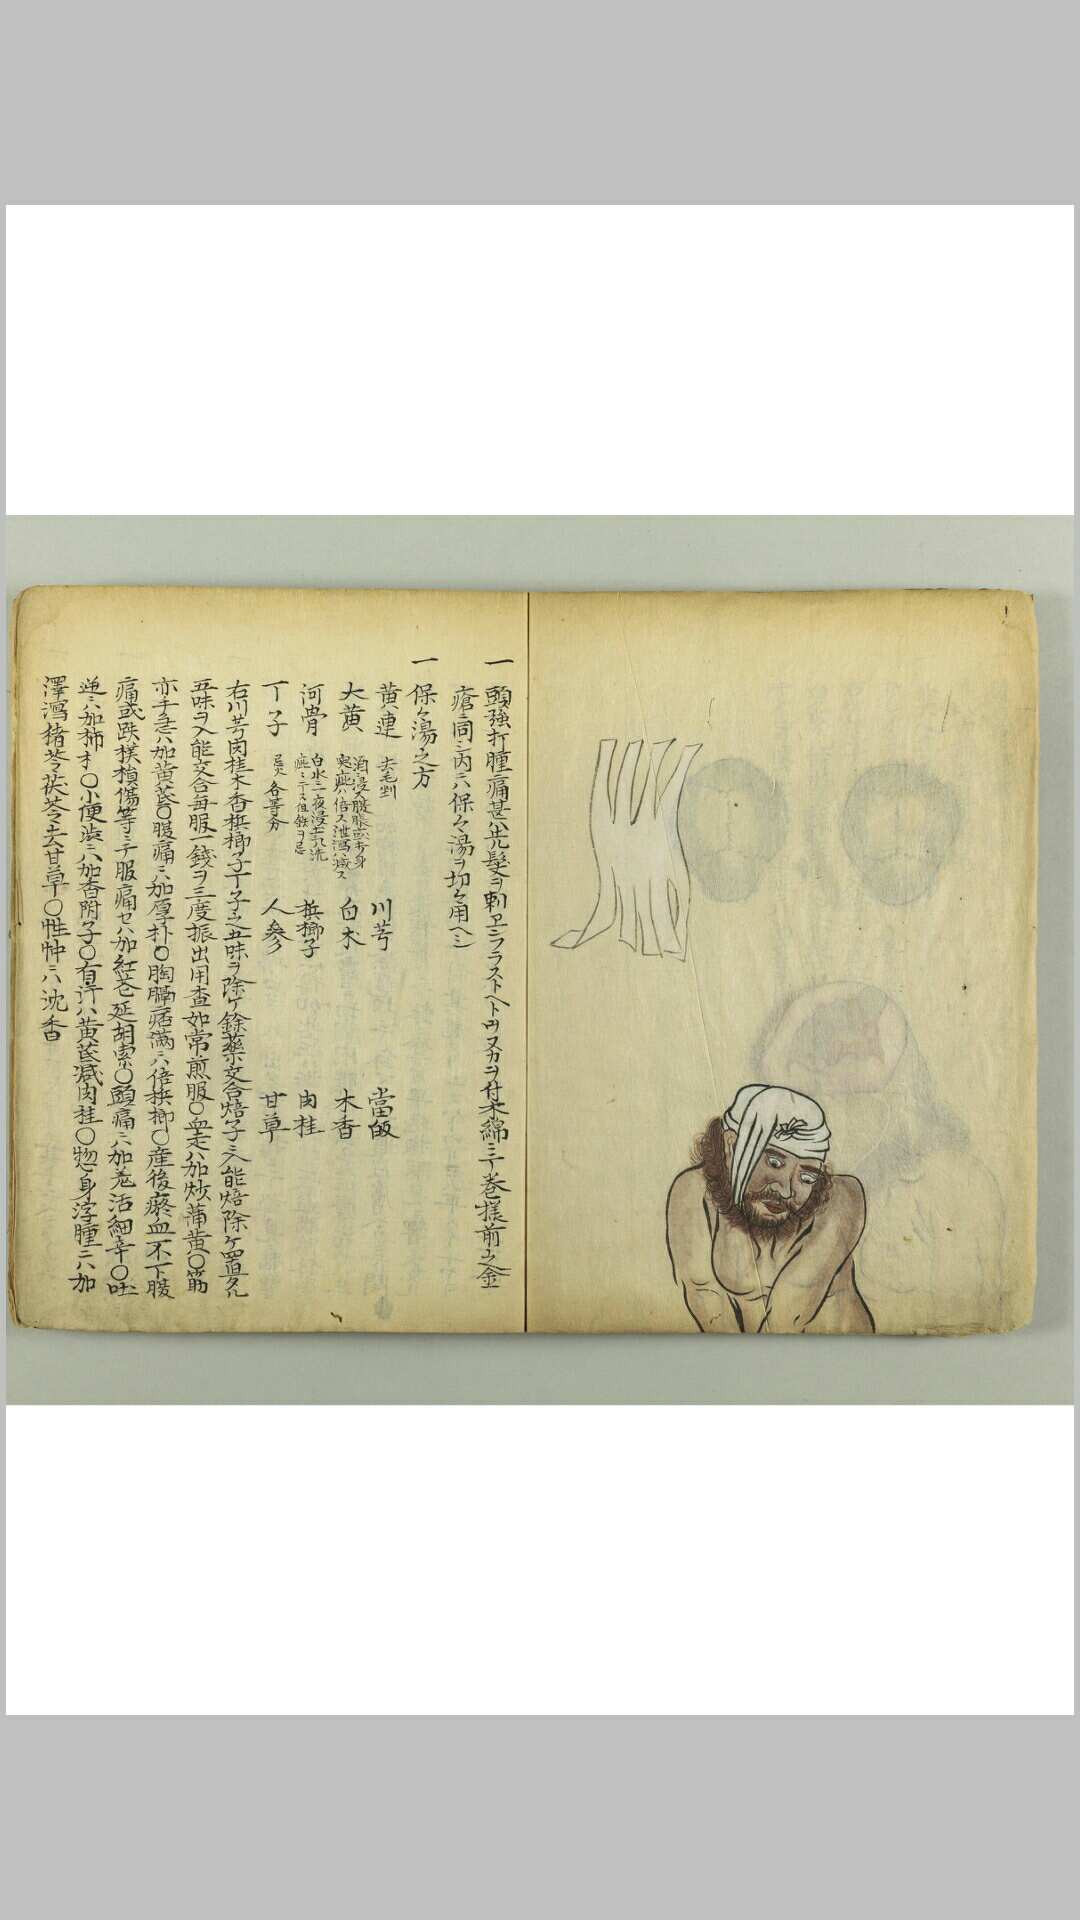 一 頭強打腫痛甚ハ先髪ヲ剃ヱンフラストヘトウヌカヲ付木綿ニテ巻様前之金
瘡ニ同シ内ニハ保々湯ヲ切々用ヘシ
一 保々湯之方
黄連 去毛剉 川芎 當皈
大黄 白朮 木香
河骨 白水ニ一夜浸 檳榔子 肉桂
丁子 忌火各等分 人參 甘草
右川芎肉桂木香檳榔子丁子之五味ヲ除ケ餘薬交合焙子ニ入能焙除ケ置タル
五味ヲ入能交合毎服一銭ヲ三度振出用査如常煎服〇血走ハ加炒蒲黄〇筋
亦手急ハ加黄芩〇腹痛ニハ加厚朴〇胸膈痞満ニハ倍檳榔〇産後瘀血不下腹
痛或跌撲損傷等ニテ服痛セハ加紅花延胡索〇頭痛ニハ加羌活細辛〇吐
逆ニハ加柿〇小便渋ニハ加香附子〇有汗ハ黄茋減肉桂〇惣身浮腫ニハ加
澤瀉猪苓茯苓去甘草〇怔忡ニハ沈香